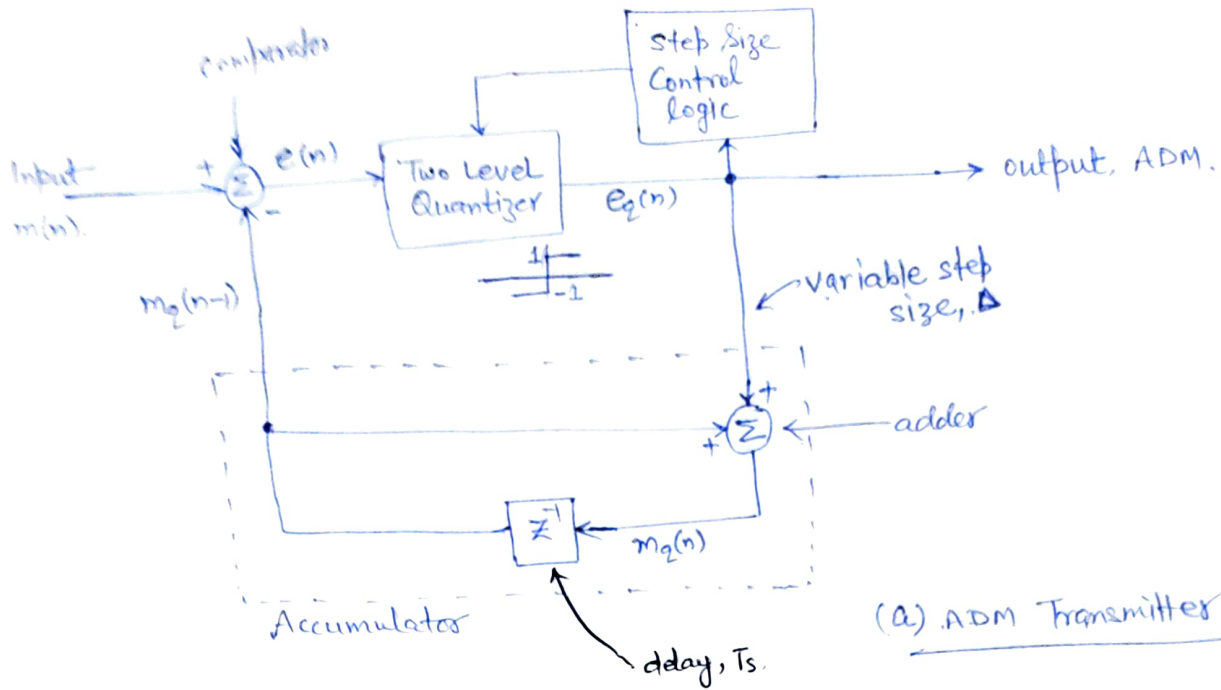 comparator
Step Size
Control
logic
Input
m(n).
+
Σ
-
e(n)
Two Level
Quantizer
e_q(n)
output, ADM.
1
-1
m_q(n-1)
variable step
size, Δ
+
+
Σ
adder
z^-1
m_q(n)
Accumulator
delay, Ts.
(a) ADM Transmitter